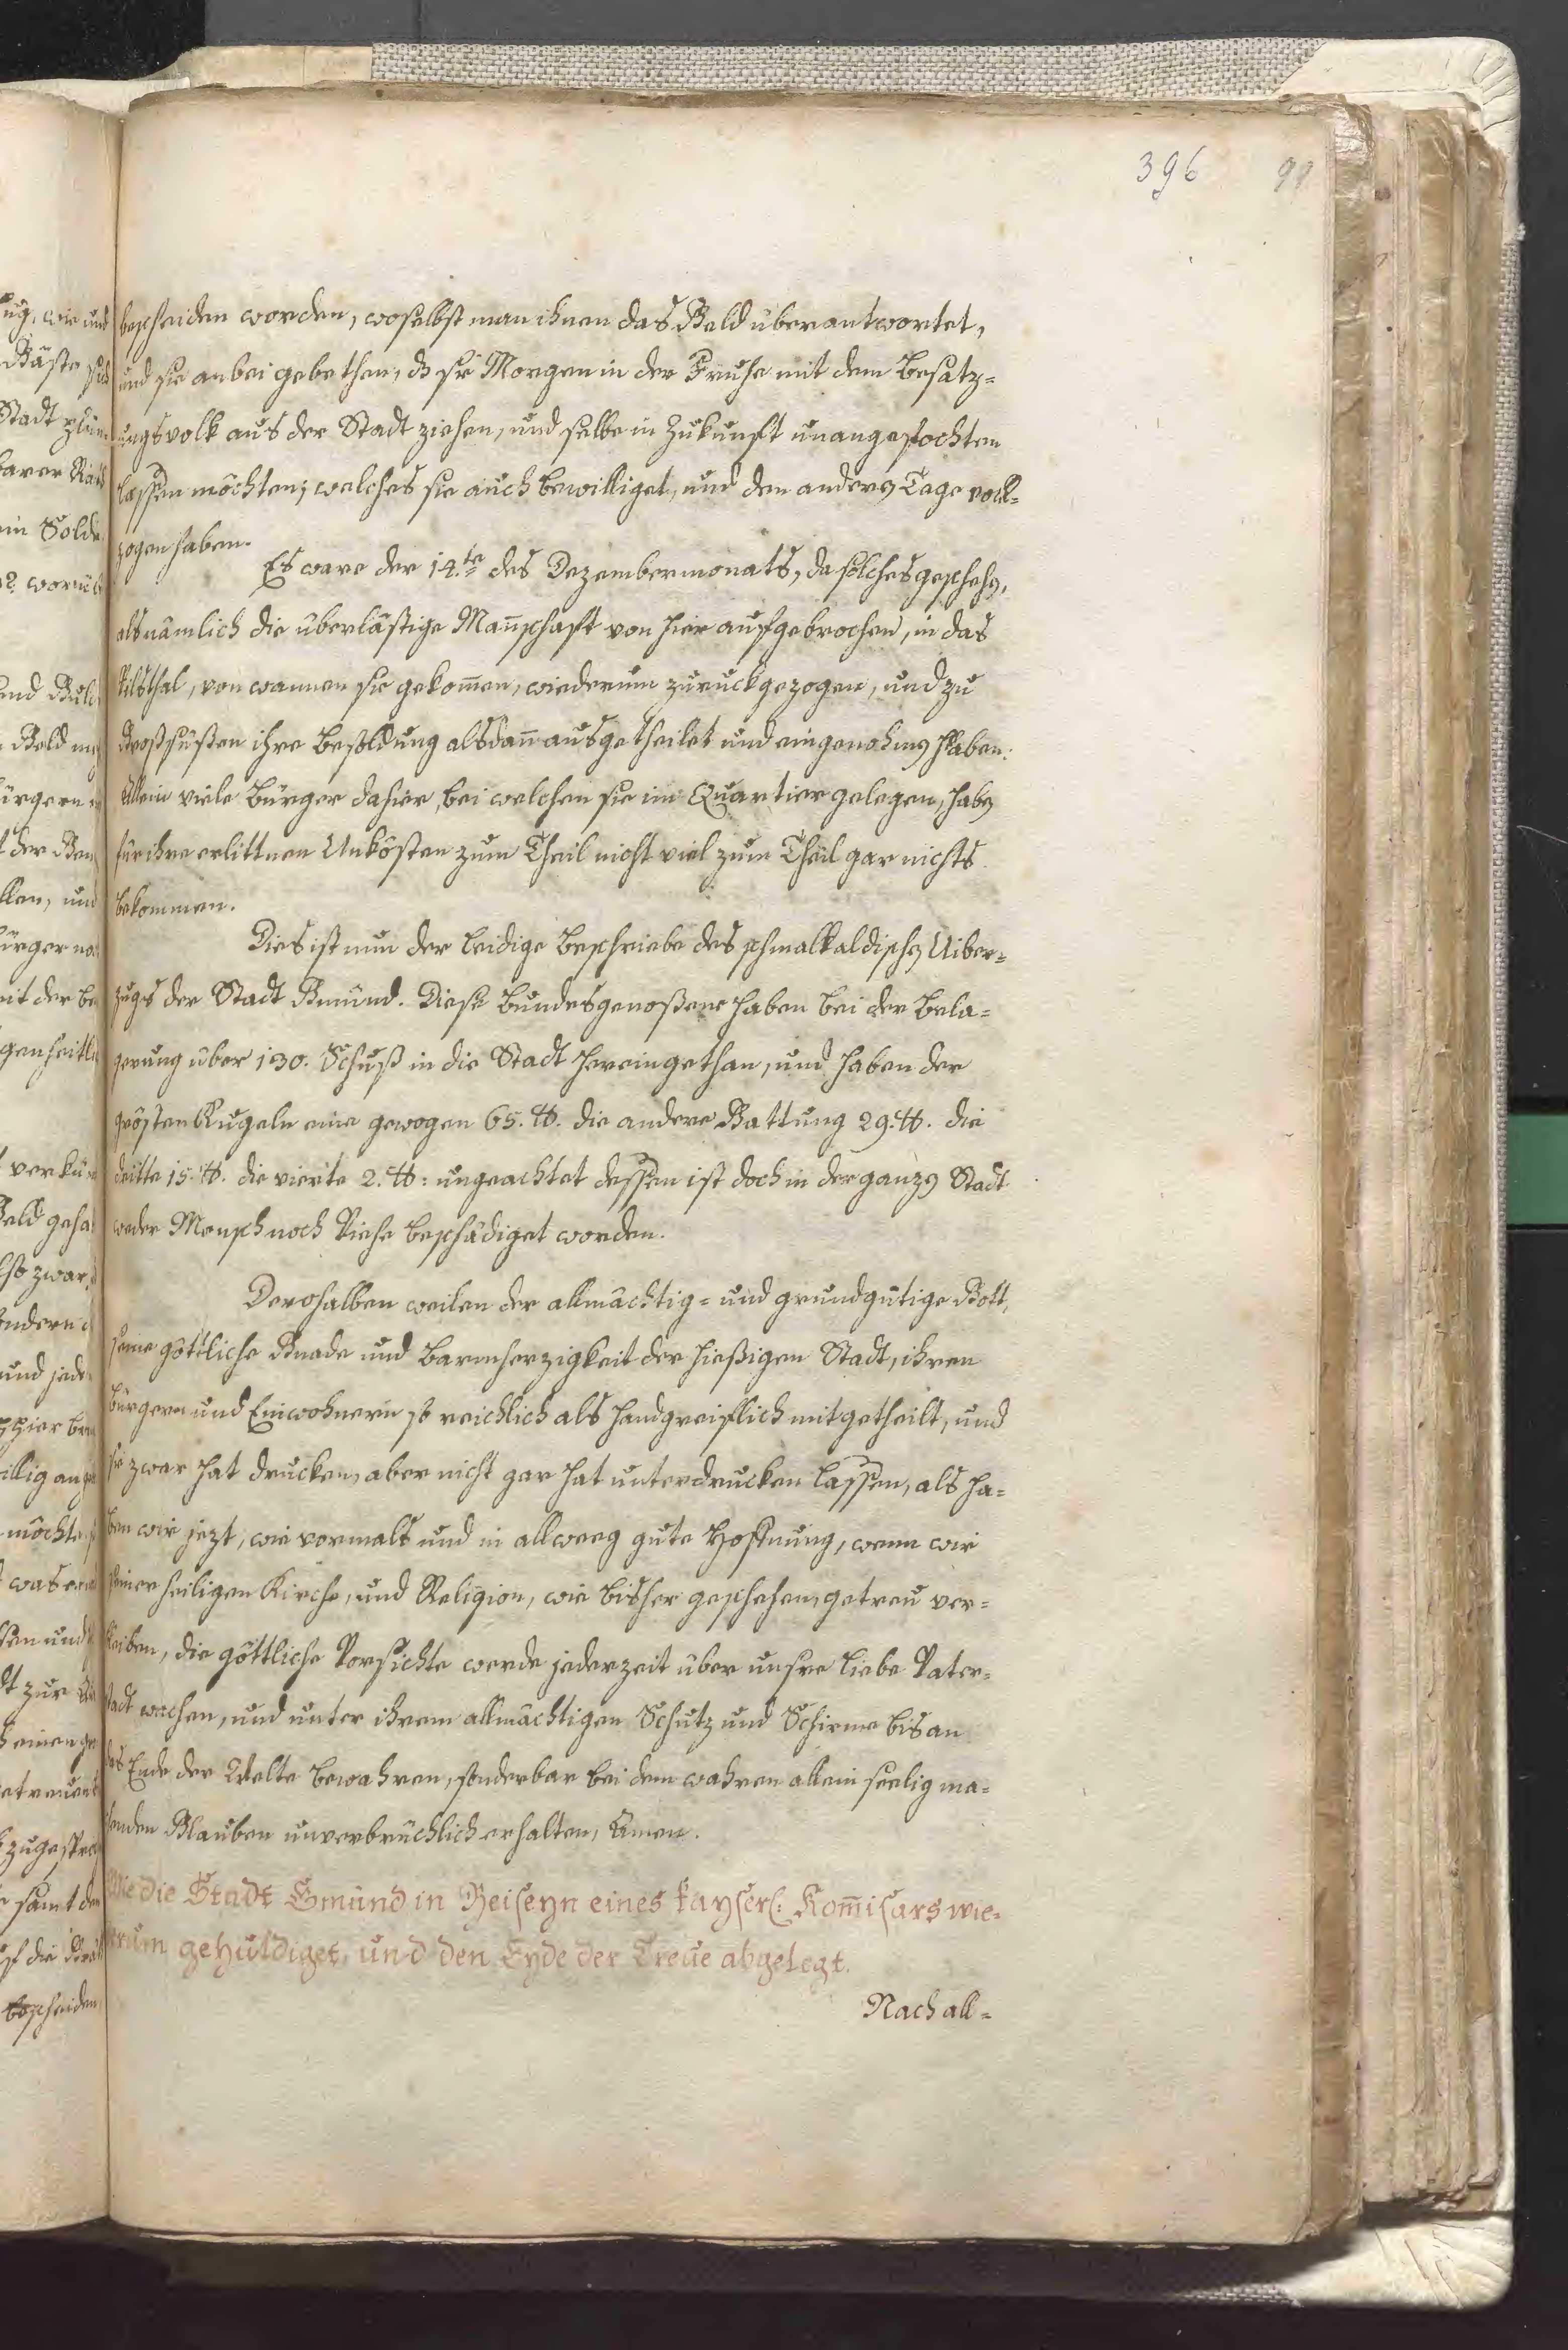 396 91
bescheiden worden, woselbst man ihnen das Geld überantwortet,
und sie anbei gebethen, dß sie Morgen in der Fruhe mit dem Besatz=
ungsvolk aus der Stadt ziehen, und selbe in Zukunft unangefochten
lassen möchten; welches sie auch bewilliget, und den andern Tage voll=
zogen haben.
Es ware der 14.te des Dezembermonats, da solches geschehen,
als nämlich die überlästige Mañschaft von hier aufgebrochen, in das
Vilsthal, von wannen sie gekom̄en, wiederum zurückgezogen, und zu
Großsüßen ihre Besoldung alsdañ ausgetheilet und eingenohmen haben.
Allein viele Bürger dahier, bei welchen sie im Quartier gelegen, haben
für ihre erlittnen Unkösten zum Theil nicht viel zum Theil gar nichts
bekommen.
Dies ist nun der leidige Beschriebe des schmalkaldischen Uiber=
zugs der Stadt Gmünd. Diese Bundesgenoßene haben bei der Bela=
gerung über 130. Schuß in die Stadt hereingethan, und haben der
grösten Kugeln eine gewogen 65. ℔. die andere Gattung 29. ℔. die
dritte 15. ℔. die vierte 2. ℔: ungeachtet dessen ist doch in der ganzen Stadt
weder Mensch noch Viehe beschädiget worden.
Derohalben weilen der allmächtig= und grundgütige Gott,
seine göttliche Gnade und Barmherzigkeit der hießigen Stadt, ihren
Bürgern und Einwohnern so reichlich als handgreiflich mitgetheilt, und
sie zwar hat drucken, aber nicht gar hat unterdrucken lassen, als ha=
ben wir jezt, wie vormals und in allweeg gute Hoffnung, wenn wir
seiner heiligen Kirche, und Religion, wie bisher geschehen, getreu ver=
bleiben, die göttliche Vorsichte werde jederzeit über unsre liebe Vater=
stadt wachen, und unter ihrem allmächtigen Schutz und Schirme bis an
das Ende der Welte bewahren, sonderbar bei dem wahren allein seelig ma=
chenden Glauben unverbrüchlich erhalten, Amen.
Wie die Stadt Gmünd in Beiseyn eines kayserl: Kom̄isars wie=
derum gehuldiget, und den Eyde der Treue abgelegt.
Nach all=